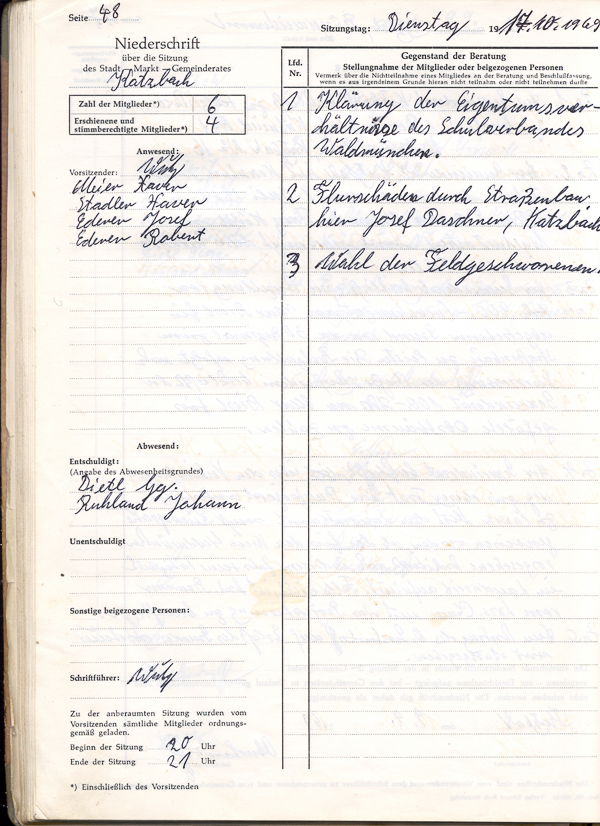 Seite 48
Sitzungstag: Dienstag 1917.10.1969
Niederschrift
über die Sitzung
des Stadt – Markt – Gemeinderates
Katzbach
Zahl der Mitglieder*) 6
Erschienene und
stimmberechtigte Mitglieder*) 4
Anwesend:
Vorsitzender:
Meier Xaver
Stadler Xaver
Ederer Josef
Ederer Robert
Abwesend:
Entschuldigt:
(Angabe des Abwesenheitsgrundes)
Dietl Gg.
Ruhland Johann
Unentschuldigt
Sonstige beigezogene Personen:
Schriftführer:
Zu der anberaumten Sitzung wurden vom
Vorsitzenden sämtliche Mitglieder ordnungs-
gemäß geladen.
Beginn der Sitzung 20 Uhr
Ende der Sitzung 21 Uhr
*) Einschließlich des Vorsitzenden
Lfd.
Nr.
Gegenstand der Beratung
Stellungnahme der Mitglieder oder beigezogenen Personen
Vermerk über die Nichtteilnahme eines Mitgliedes an der Beratung und Beschlußfassung,
wenn es aus irgendeinem Grunde hieran nicht teilnahm oder nicht teilnehmen durfte
1 Klärung der Eigentumsver-
hältniße des Schulverbandes
Waldmünchen.
2 Flurschäden durch Straßenbau,
hier Josef Daschner, Katzbach
3 Wahl der Feldgeschworenen.